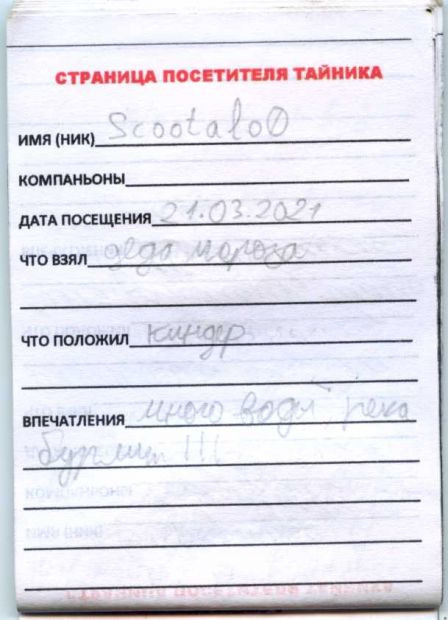 СТРАНИЦА ПОСЕТИТЕЛЯ ТАЙНИКА
ИМЯ (НИК) Scootaloo
КОМПАНЬОНЫ
ДАТА ПОСЕЩЕНИЯ 21.03.2021
ЧТО ВЗЯЛ деда мороза
ЧТО ПОЛОЖИЛ киндер
ВПЕЧАТЛЕНИЯ много воды, река
бурлит !!!